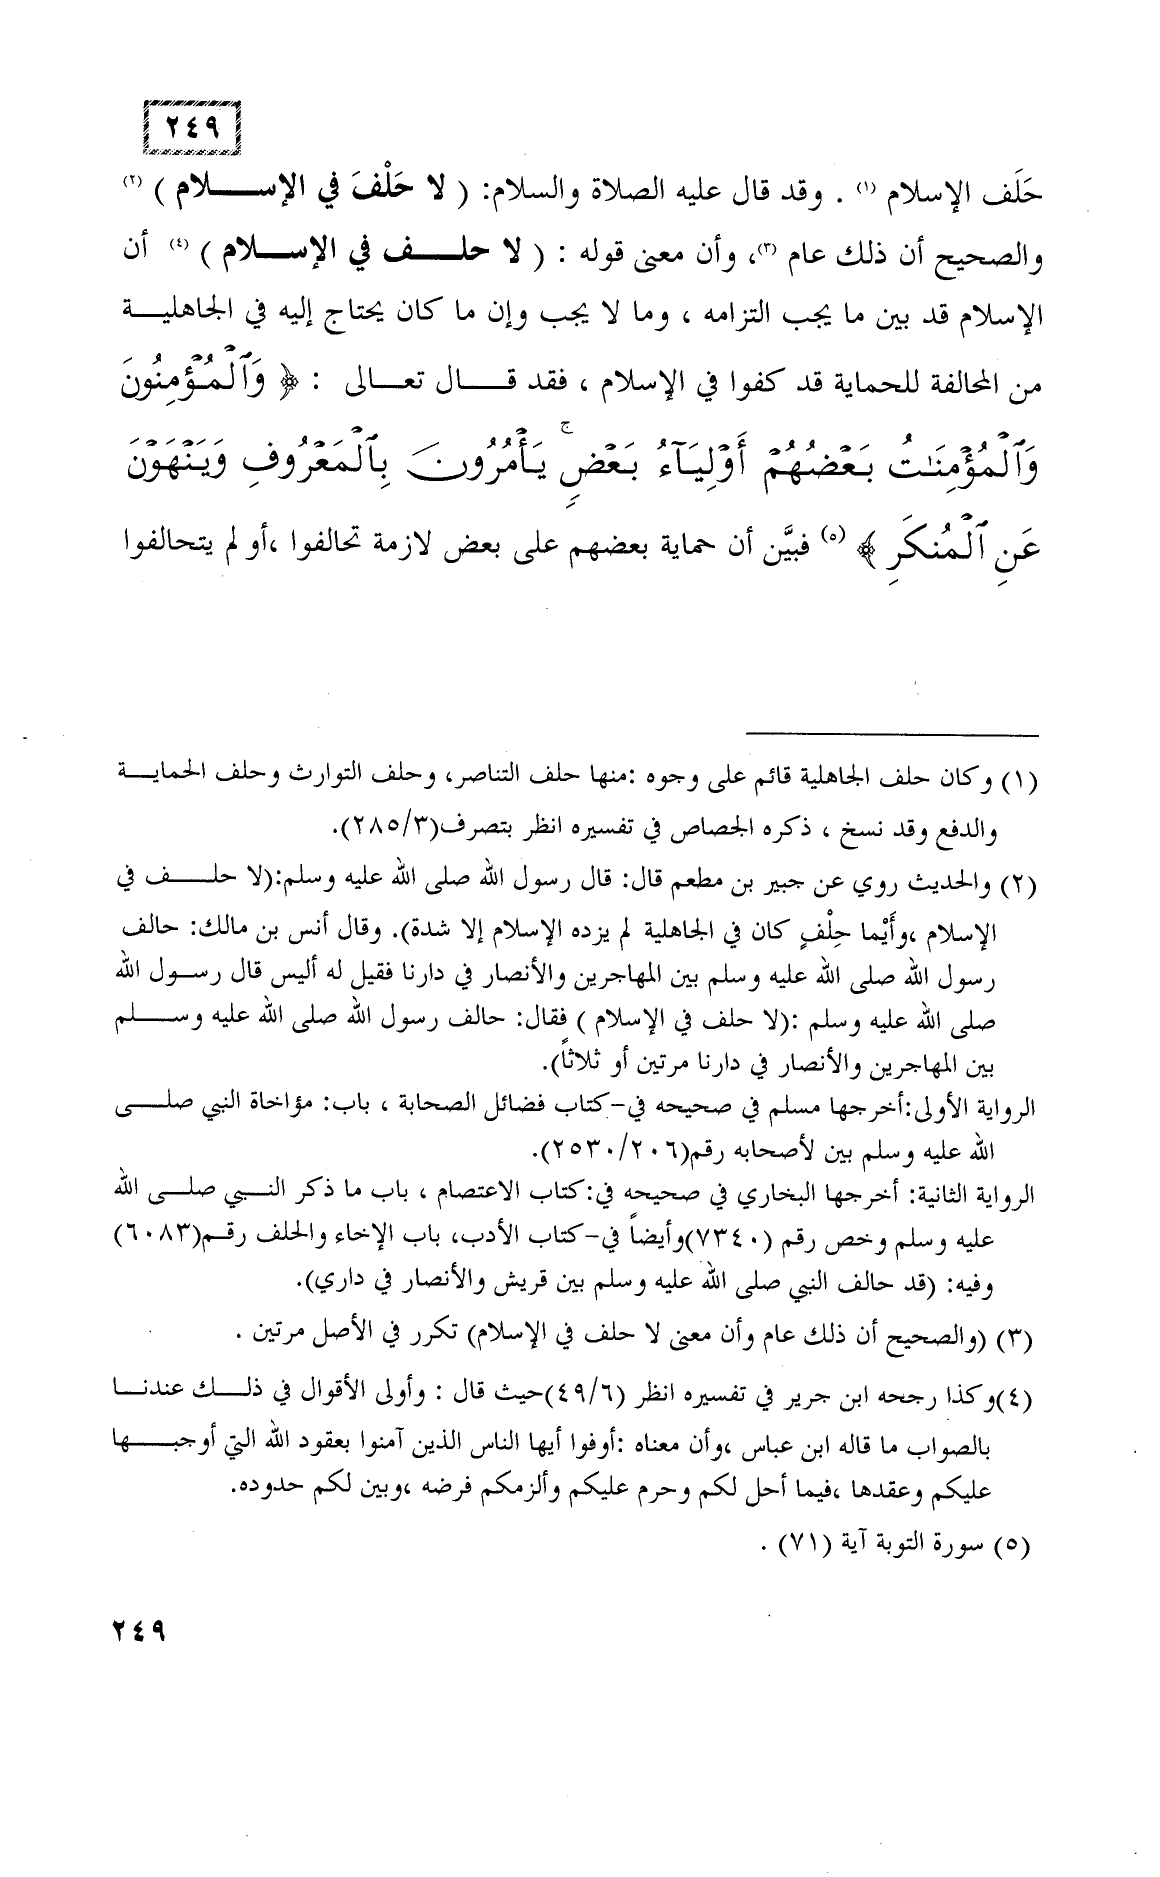 ٢٤٩
حَلَف الإسلام (١) . وقد قال عليه الصلاة والسلام: ( لا حَلْفَ في الإســـــلام ) (٢)
والصحيح أن ذلك عام (٣)، وأن معنى قوله : ( لا حلــــف في الإســـلام ) (٤) أن
الإسلام قد بين ما يجب التزامه ، وما لا يجب وإن ما كان يحتاج إليه في الجاهليـــة
من المحالفة للحماية قد كفوا في الإسلام ، فقد قـــال تعـــالى : ﴿ وَٱلْمُؤْمِنُونَ
وَٱلْمُؤْمِنَٰتُ بَعْضُهُمْ أَوْلِيَآءُ بَعْضٍ ۚ يَأْمُرُونَ بِٱلْمَعْرُوفِ وَيَنْهَوْنَ
عَنِ ٱلْمُنكَرِ ﴾ (٥) فبيَّن أن حماية بعضهم على بعض لازمة تحالفوا ،أو لم يتحالفوا
(١) وكان حلف الجاهلية قائم على وجوه :منها حلف التناصر، وحلف التوارث وحلف الحمايـــة
والدفع وقد نسخ ، ذكره الجصاص في تفسيره انظر بتصرف(٢٨٥/٣).
(٢) والحديث روي عن جبير بن مطعم قال: قال رسول الله صلى الله عليه وسلم:(لا حلـــف في
الإسلام ،وأَيْما حِلْفٍ كان في الجاهلية لم يزده الإسلام إلا شدة). وقال أنس بن مالك: حالف
رسول الله صلى الله عليه وسلم بين المهاجرين والأنصار في دارنا فقيل له أليس قال رسـول الله
صلى الله عليه وسلم :(لا حلف في الإسلام ) فقال: حالف رسول الله صلى الله عليه وســـلم
بين المهاجرين والأنصار في دارنا مرتين أو ثلاثاً).
الرواية الأولى:أخرجها مسلم في صحيحه في-كتاب فضائل الصحابة ، باب: مؤاخاة النبي صلـــى
الله عليه وسلم بين لأصحابه رقم(٢٥٣٠/٢٠٦).
الرواية الثانية: أخرجها البخاري في صحيحه في:كتاب الاعتصام ، باب ما ذكر النـــبي صلـــى الله
عليه وسلم وخص رقم (٧٣٤٠)وأيضاً في-كتاب الأدب، باب الإخاء والحلف رقـم(٦٠٨٣)
وفيه: (قد حالف النبي صلى الله عليه وسلم بين قريش والأنصار في داري).
(٣) (والصحيح أن ذلك عام وأن معنى لا حلف في الإسلام) تكرر في الأصل مرتين .
(٤)وكذا رجحه ابن جرير في تفسيره انظر (٤٩/٦)حيث قال : وأولى الأقوال في ذلـــك عندنـــا
بالصواب ما قاله ابن عباس ،وأن معناه :أوفوا أيها الناس الذين آمنوا بعقود الله التي أوجبـــها
عليكم وعقدها ،فيما أحل لكم وحرم عليكم وألزمكم فرضه ،وبين لكم حدوده.
(٥) سورة التوبة آية (٧١) .
٢٤٩